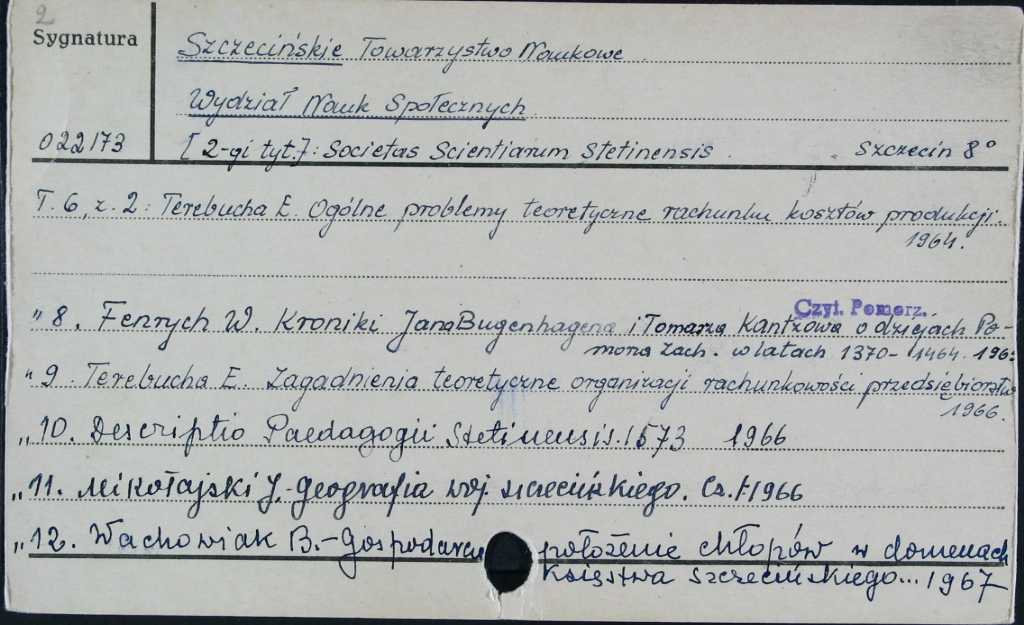 2
Sygnatura
Szczecińskie Towarzystwo Naukowe
Wydział Nauk Społecznych
022/73
[2-gi tyt.]: Societas Scientiarum Stetinensis. Szczecin 8°
T. 6, z. 2: Terebucha E. Ogólne problemy teoretyczne rachunku kosztów produkcji.
1964.
Czyt. Pomorz.
" 8. Fenrych W. Kroniki Jana Bugenhagena i Tomasza Kantzowa o dziejach Po-
morza Zach. w latach 1370-1464.
" 9. Terebucha E. Zagadnienia teoretyczne organizacji rachunkowości
1966.
" 10. Descriptio Paedagogii Stetinensis. 1573 1966
" 11. Mikołajski J.-Geografia woj. szczecińskiego. Cz. I 1966
" 12. Wachowiak B.- położenie chłopów w domenach
Księstwa Szczecińskiego... 1967